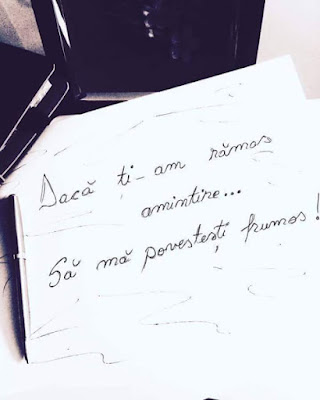 Dacă ți-am rămas
amintire...
Să mă povestești frumos!